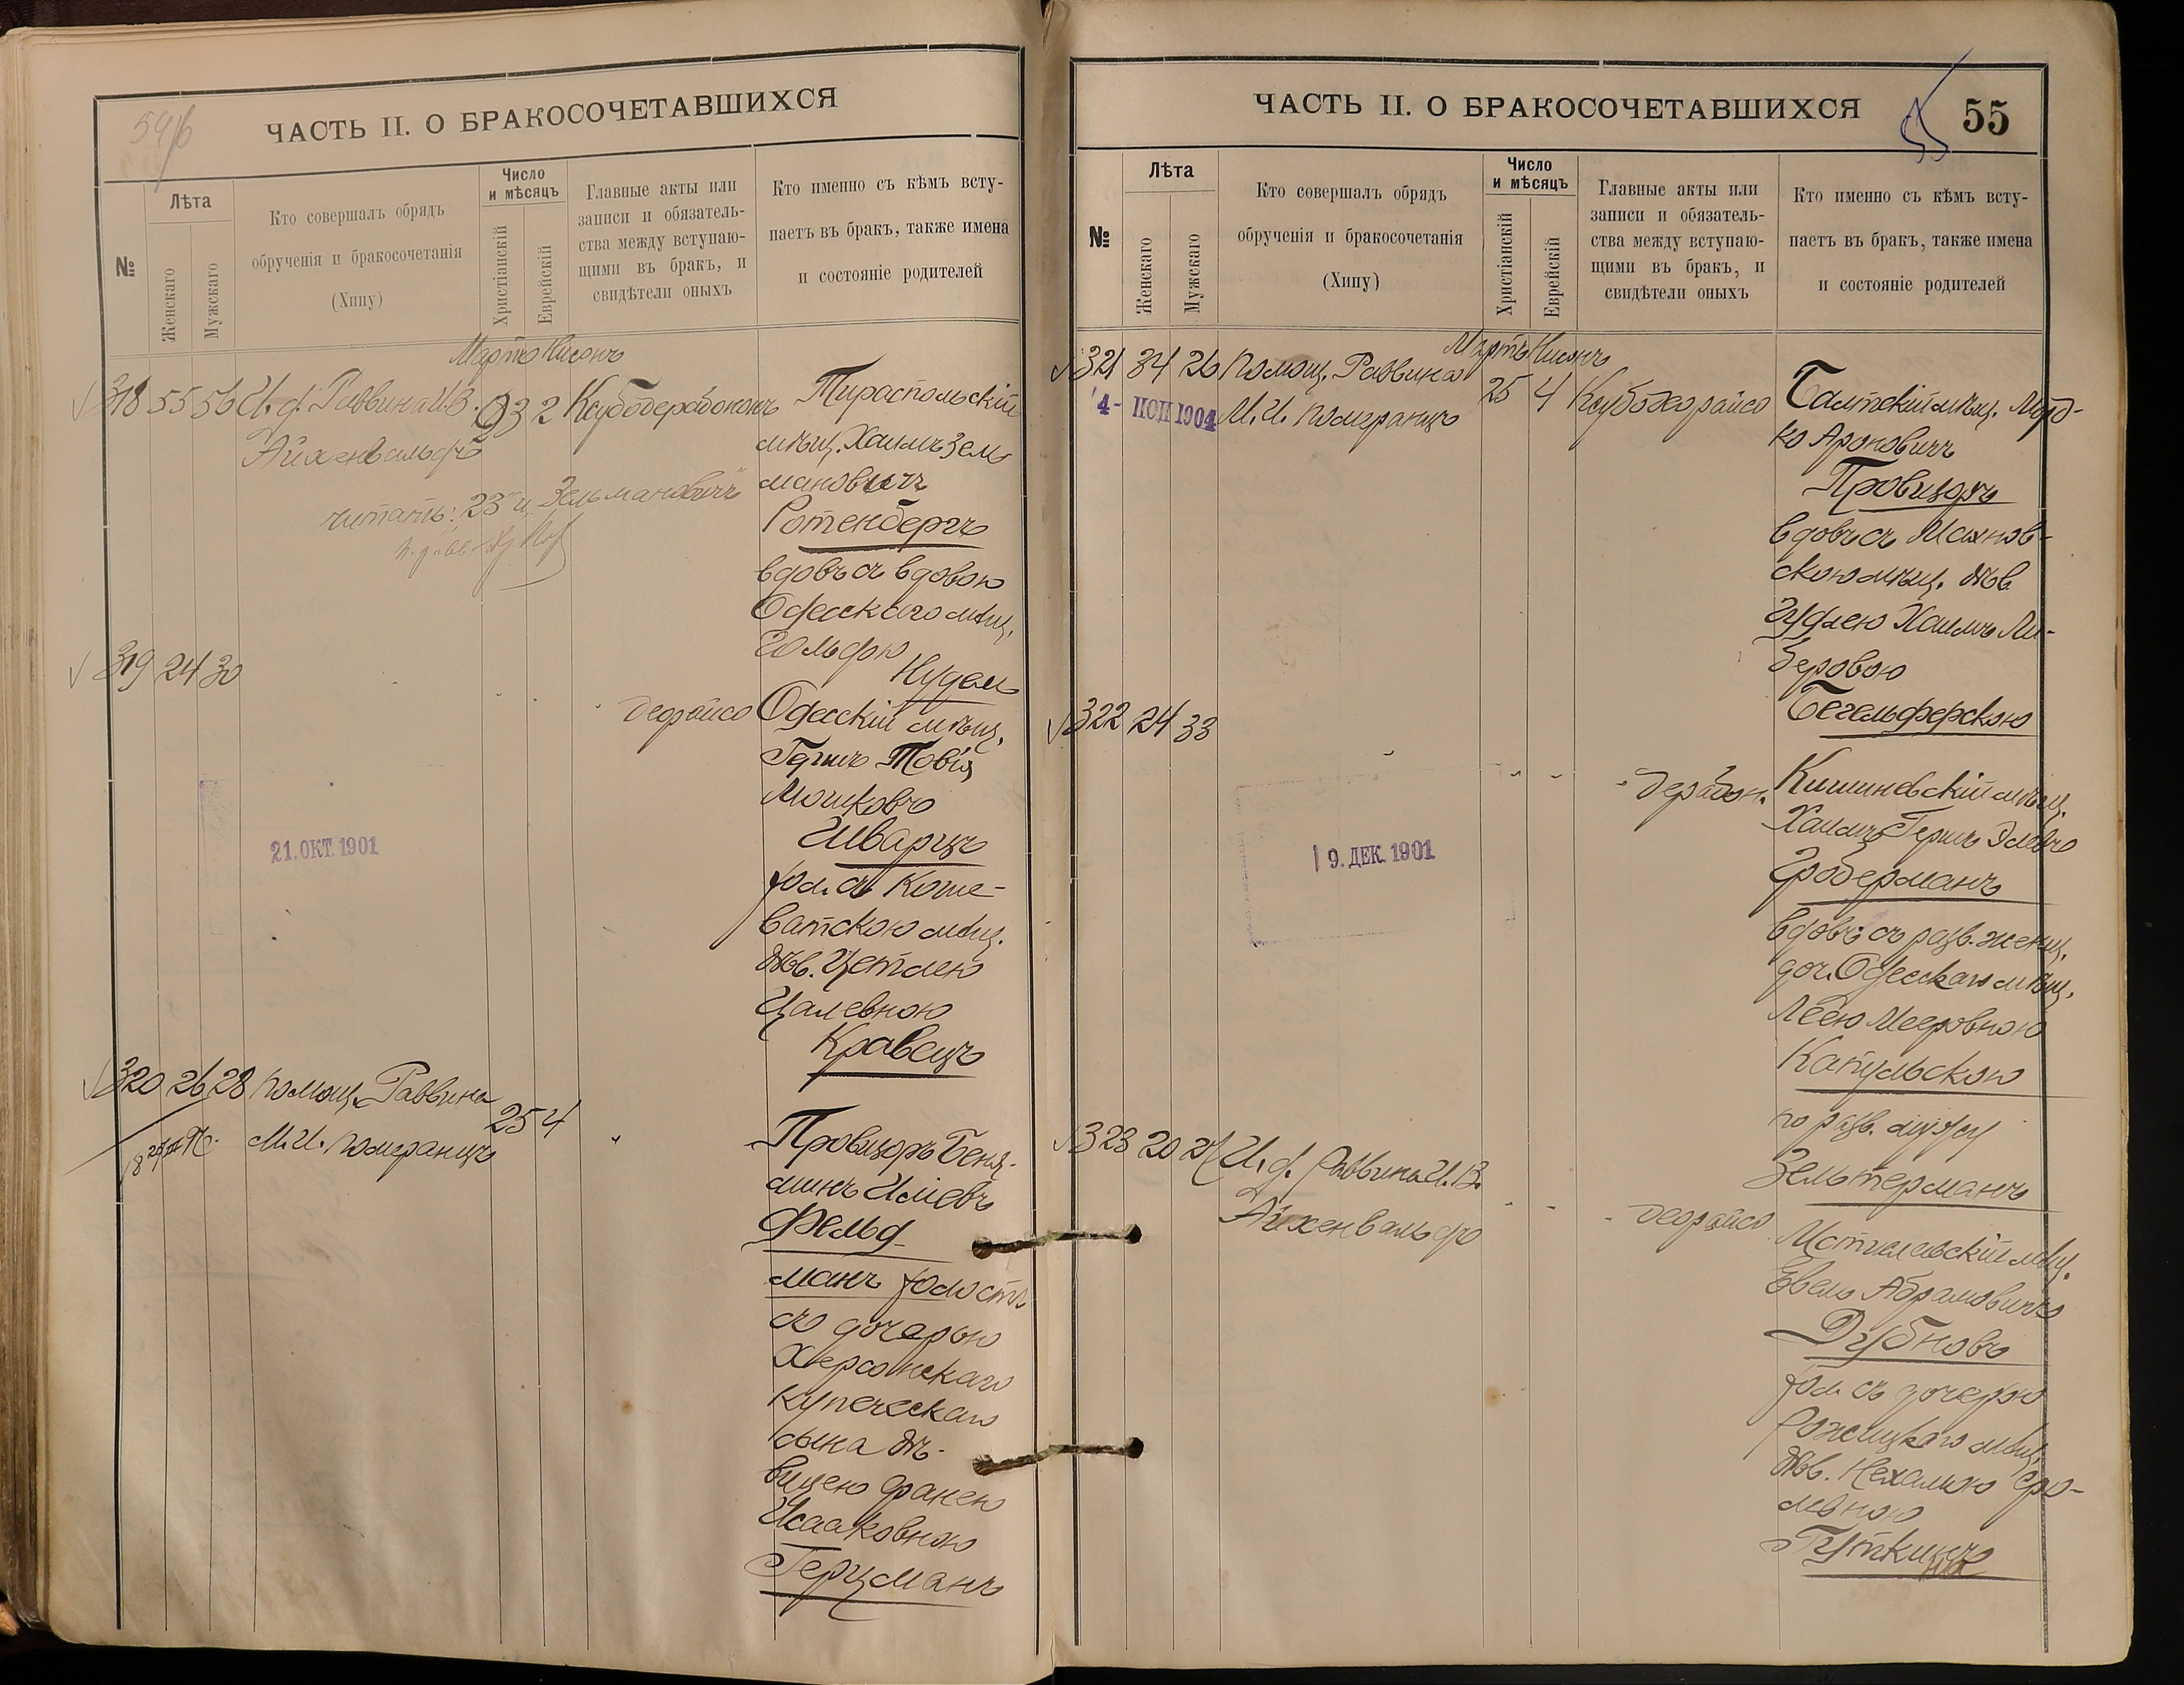 54/б
ЧАСТЬ II. О БРАКОСОЧЕТАВШИХСЯ
№
Лѣта
Женскаго
Мужскаго
Кто совершалъ обрядъ
обрученія и бракосочетанія
(Хипу)
Число
и мѣсяцъ
Христіанскій
Еврейскій
Главные акты или
записи и обязатель-
ства между вступаю-
щими въ бракъ, и
свидѣтели оныхъ
Кто именно съ кѣмъ всту-
паетъ въ бракъ, также имена
и состояніе родителей
Мартъ Нисонъ
318 55 56 И. д. Раввина И.В. 23 2 Ксубодерабононъ
Айхенвальдъ
Тираспольскій
мѣщ. Хаимъ Зел
мановичъ
Ротенбергъ
вдовъ съ вдовою
Одесскаго мѣщ.
Гольдою
Нудель
читать: "23" и "Зельмановичъ"
319 24 30
деорайсо
Одесскій мѣщ.
Гершъ Товія
Мошковъ
Шварцъ
хол. съ Коше-
ватскою мѣщ.
дѣв. Цетлею
Цалевною
Кравецъ
21. ОКТ. 1901
320 26 28 Помощ. Раввина 25 4 "
М. И. Померанцъ
Провизоръ Беня-
минъ Иліевъ
Фельд-
манъ холостъ
съ дочерью
Херсонскаго
купеческаго
сына дѣ-
вицею Фанею
Исааковною
Герцманъ
ЧАСТЬ II. О БРАКОСОЧЕТАВШИХСЯ
55
55
№
Лѣта
Женскаго
Мужскаго
Кто совершалъ обрядъ
обрученія и бракосочетанія
(Хипу)
Число
и мѣсяцъ
Христіанскій
Еврейскій
Главные акты или
записи и обязатель-
ства между вступаю-
щими въ бракъ, и
свидѣтели оныхъ
Кто именно съ кѣмъ всту-
паетъ въ бракъ, также имена
и состояніе родителей
Мартъ Нисонъ
321 34 26 Помощ. Раввина 25 4 Ксубодеорайсо
4- 1904 М. И. Померанцъ
Балтскій мѣщ. Морд-
ко Ароновичъ
Провизоръ
вдовъ съ
скою мѣщ. дѣв.
Гудлею Хаимъ Ли-
беровою
Бегельферскою
322 24 33
дерабон.
Кишиневскій мѣщ.
Хаимъ Гершъ Элевъ
Гроберманъ
вдовъ съ разв. женщ.
доч. Одесскаго мѣщ.
Леею Мееровною
Капульскою
по разв. мужу
Зельтерманъ
19. ДЕК. 1901
323 20 27 И. д. Раввина И. В.
Айхенвальдъ
деорайсо
Могилевскій мѣщ.
Евель Абрамовичъ
Дубновъ
хол. съ дочерью
мѣщ.
дѣв. Нехамою Сро-
левною
Гуткина